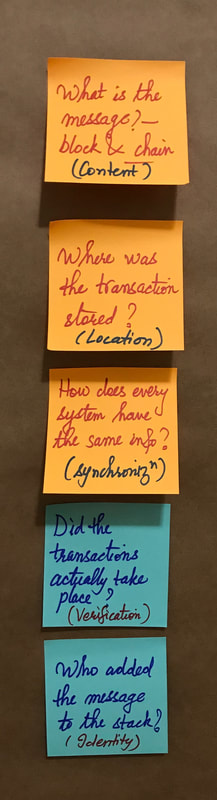 What is the
message?—
block & chain
(Content)
Where was
the transaction
stored?
(Location)
How does every
system have
the same info?
(synchronizⁿ)
Did the
transactions
actually take
place?
(Verification)
Who added
the message
to the stack?
(Identity)